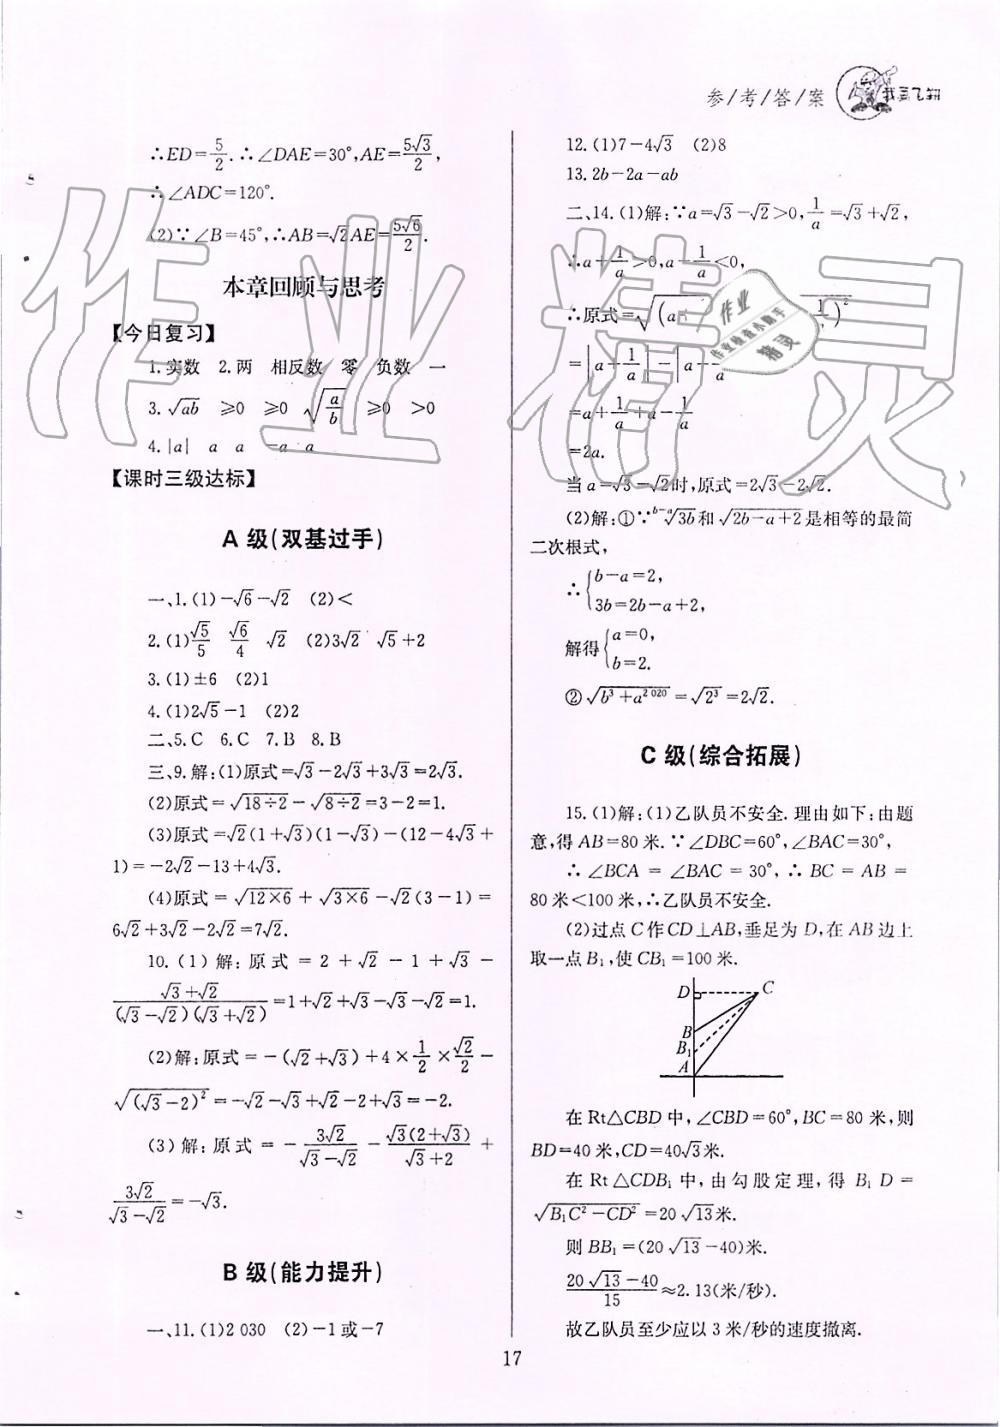 参/考/答/案
∴ED=5/2.∴∠DAE=30°,AE=5√3/2,
∴∠ADC=120°.
(2)∵∠B=45°,∴AB=√2AE=5√6/2.
本章回顾与思考
【今日复习】
1.实数 2.两 相反数 零 负数 一
3.√ab ≥0 ≥0 √(a/b) ≥0 >0
4.|a| a a -a a
【课时三级达标】
A 级(双基过手)
一、1.(1)-√6-√2 (2)<
2.(1)√5/5 √6/4 √2 (2)3√2 √5+2
3.(1)±6 (2)1
4.(1)2√5-1 (2)2
二、5.C 6.C 7.B 8.B
三、9.解:(1)原式=√3-2√3+3√3=2√3.
(2)原式=√(18÷2)-√(8÷2)=3-2=1.
(3)原式=√2(1+√3)(1-√3)-(12-4√3+
1)=-2√2-13+4√3.
(4)原式=√(12×6)+√(3×6)-√2(3-1)=
6√2+3√2-2√2=7√2.
10.(1)解:原式=2+√2-1+√3-
(√3+√2)/((√3-√2)(√3+√2))=1+√2+√3-√3-√2=1.
(2)解:原式=-(√2+√3)+4×1/2×√2/2-
√((√3-2)²)=-√2-√3+√2-2+√3=-2.
(3)解:原式=-3√2/(√3-√2)-√3(2+√3)/(√3+2)+
3√2/(√3-√2)=-√3.
B 级(能力提升)
一、11.(1)2 030 (2)-1或-7
12.(1)7-4√3 (2)8
13.2b-2a-ab
二、14.(1)解:∵a=√3-√2>0,1/a=√3+√2,
∴a+1/a>0,a-1/a<0,
∴原式=√(a
=|a+1/a|-|a-
=a+1/a+a-1/a
=2a.
当a=√3-√2时,原式=2√3-2√2.
(2)解:①∵ᵇ⁻ᵃ√3b和√(2b-a+2)是相等的最简
二次根式,
∴{b-a=2,
3b=2b-a+2,
解得{a=0,
b=2.
②√(b³+a²⁰²⁰)=√2³=2√2.
C 级(综合拓展)
15.(1)解:(1)乙队员不安全.理由如下:由题
意,得AB=80米.∵∠DBC=60°,∠BAC=30°,
∴∠BCA=∠BAC=30°,∴BC=AB=
80米<100米,∴乙队员不安全.
(2)过点C作CD⊥AB,垂足为D,在AB边上
取一点B₁,使CB₁=100米.
D C
B
B₁
A
在Rt△CBD中,∠CBD=60°,BC=80米,则
BD=40米,CD=40√3米.
在Rt△CDB₁中,由勾股定理,得B₁D=
√(B₁C²-CD²)=20√13米.
则BB₁=(20√13-40)米.
(20√13-40)/15≈2.13(米/秒).
故乙队员至少应以3米/秒的速度撤离.
17
作业精灵